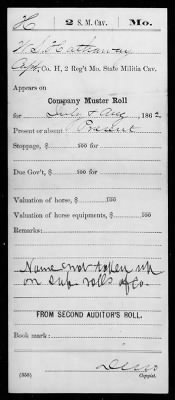 H 2 S. M. Cav. Mo.
W. S. Hathaway
Co. H, 2 Reg't Mo. State Militia Cav.
Company Muster Roll
for July & Aug, 1862
Present or absent Present
Stoppage, $ 100 for
Due Gov't, $ 100 for
Valuation of horse, $ 100
Valuation of horse equipments, $ 100
Remarks:
Name not taken up
on sub rolls of Co.
FROM SECOND AUDITOR'S ROLL.
Book mark:
(358) Copyist.